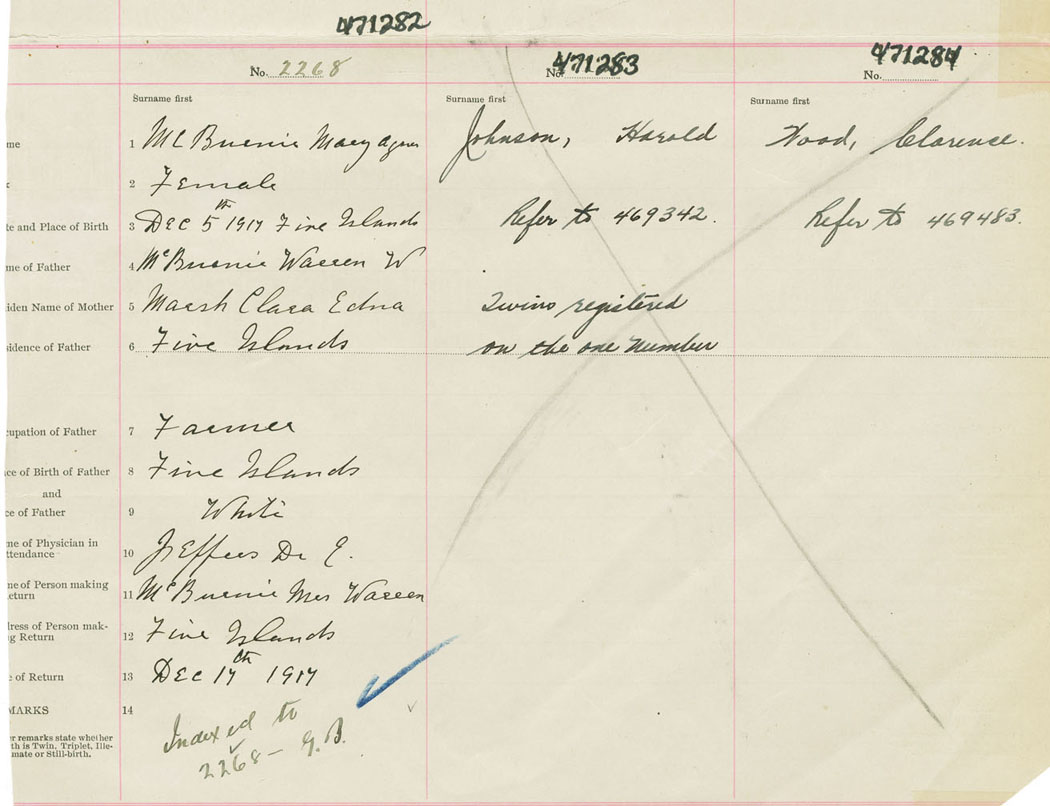 471282
No. 2268
No. 471283
471284
No.
Surname first
Surname first
Surname first
me
1 McBurnie Mary Agnes
Johnson, Harold
Wood, Clarence.
2 Female
te and Place of Birth
3 Dec 5th 1917 Five Islands
Refer to 469342.
Refer to 469483.
me of Father
4 McBurnie Warren W
iden Name of Mother
5 Marsh Clara Edna
Twins registered
sidence of Father
6 Five Islands
on the one number
cupation of Father
7 Farmer
ce of Birth of Father
8 Five Islands
and
ce of Father
9 White
me of Physician in
ttendance
10 Jeffers Dr E.
me of Person making
eturn
11 McBurnie Mrs Warren
dress of Person mak-
g Return
12 Five Islands
e of Return
13 Dec 17th 1917
MARKS
14
Indexed to
2268 - G.B.
r remarks state whether
th is Twin, Triplet, Ille-
mate or Still-birth.